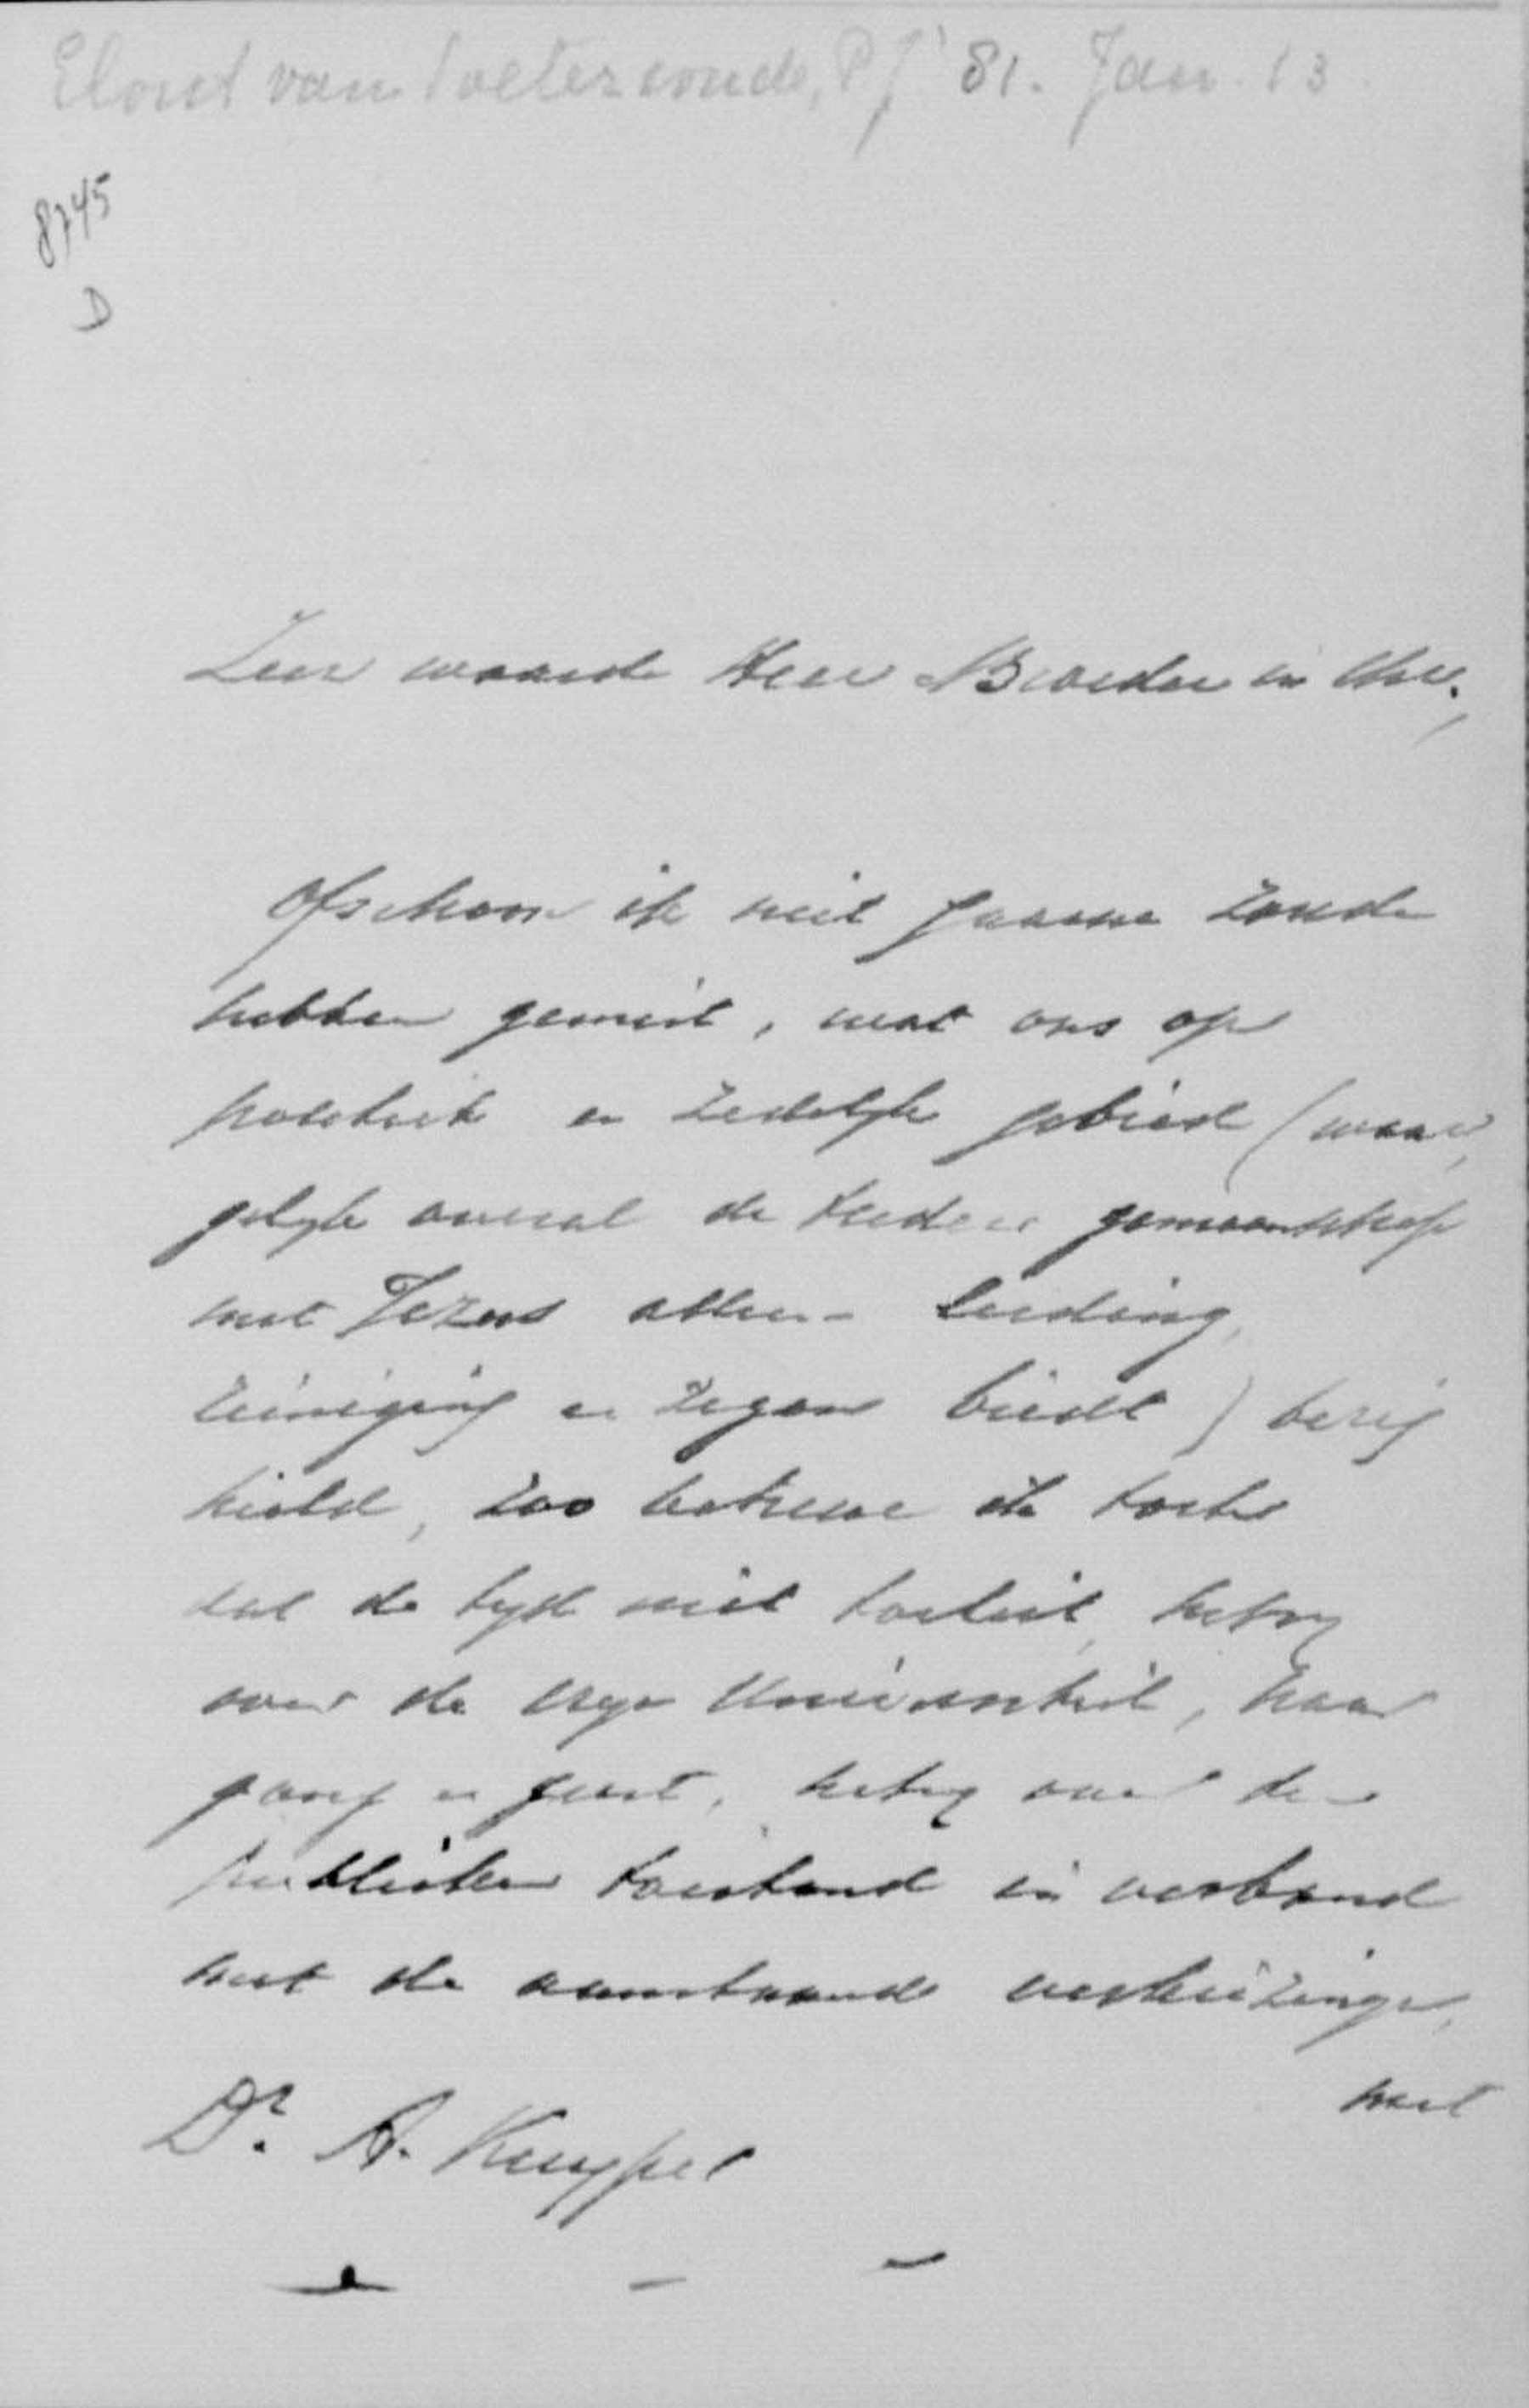 Elout van Soeterwoude, P J '81. Jan. 13
8745
D
Zeer waarde Heer & Broeder in Chr.,
Ofschoon ik niet gaarne zoude
hebben gemist, wat ons op
politiek en zedelijk gebied (waar,
gelijk overal de teedere gemeenschap
met Jezus alleen leiding,
reiniging en zegen biedt) bezig
hield, zoo betreur ik toch
dat de tijd niet toeliet, hetzij
over de vrije Universiteit, haar
gang en geest, hetzij over den
publieken toestand in verband
met de aanstaande verkiezingen,
met
Dr. A. Kuyper